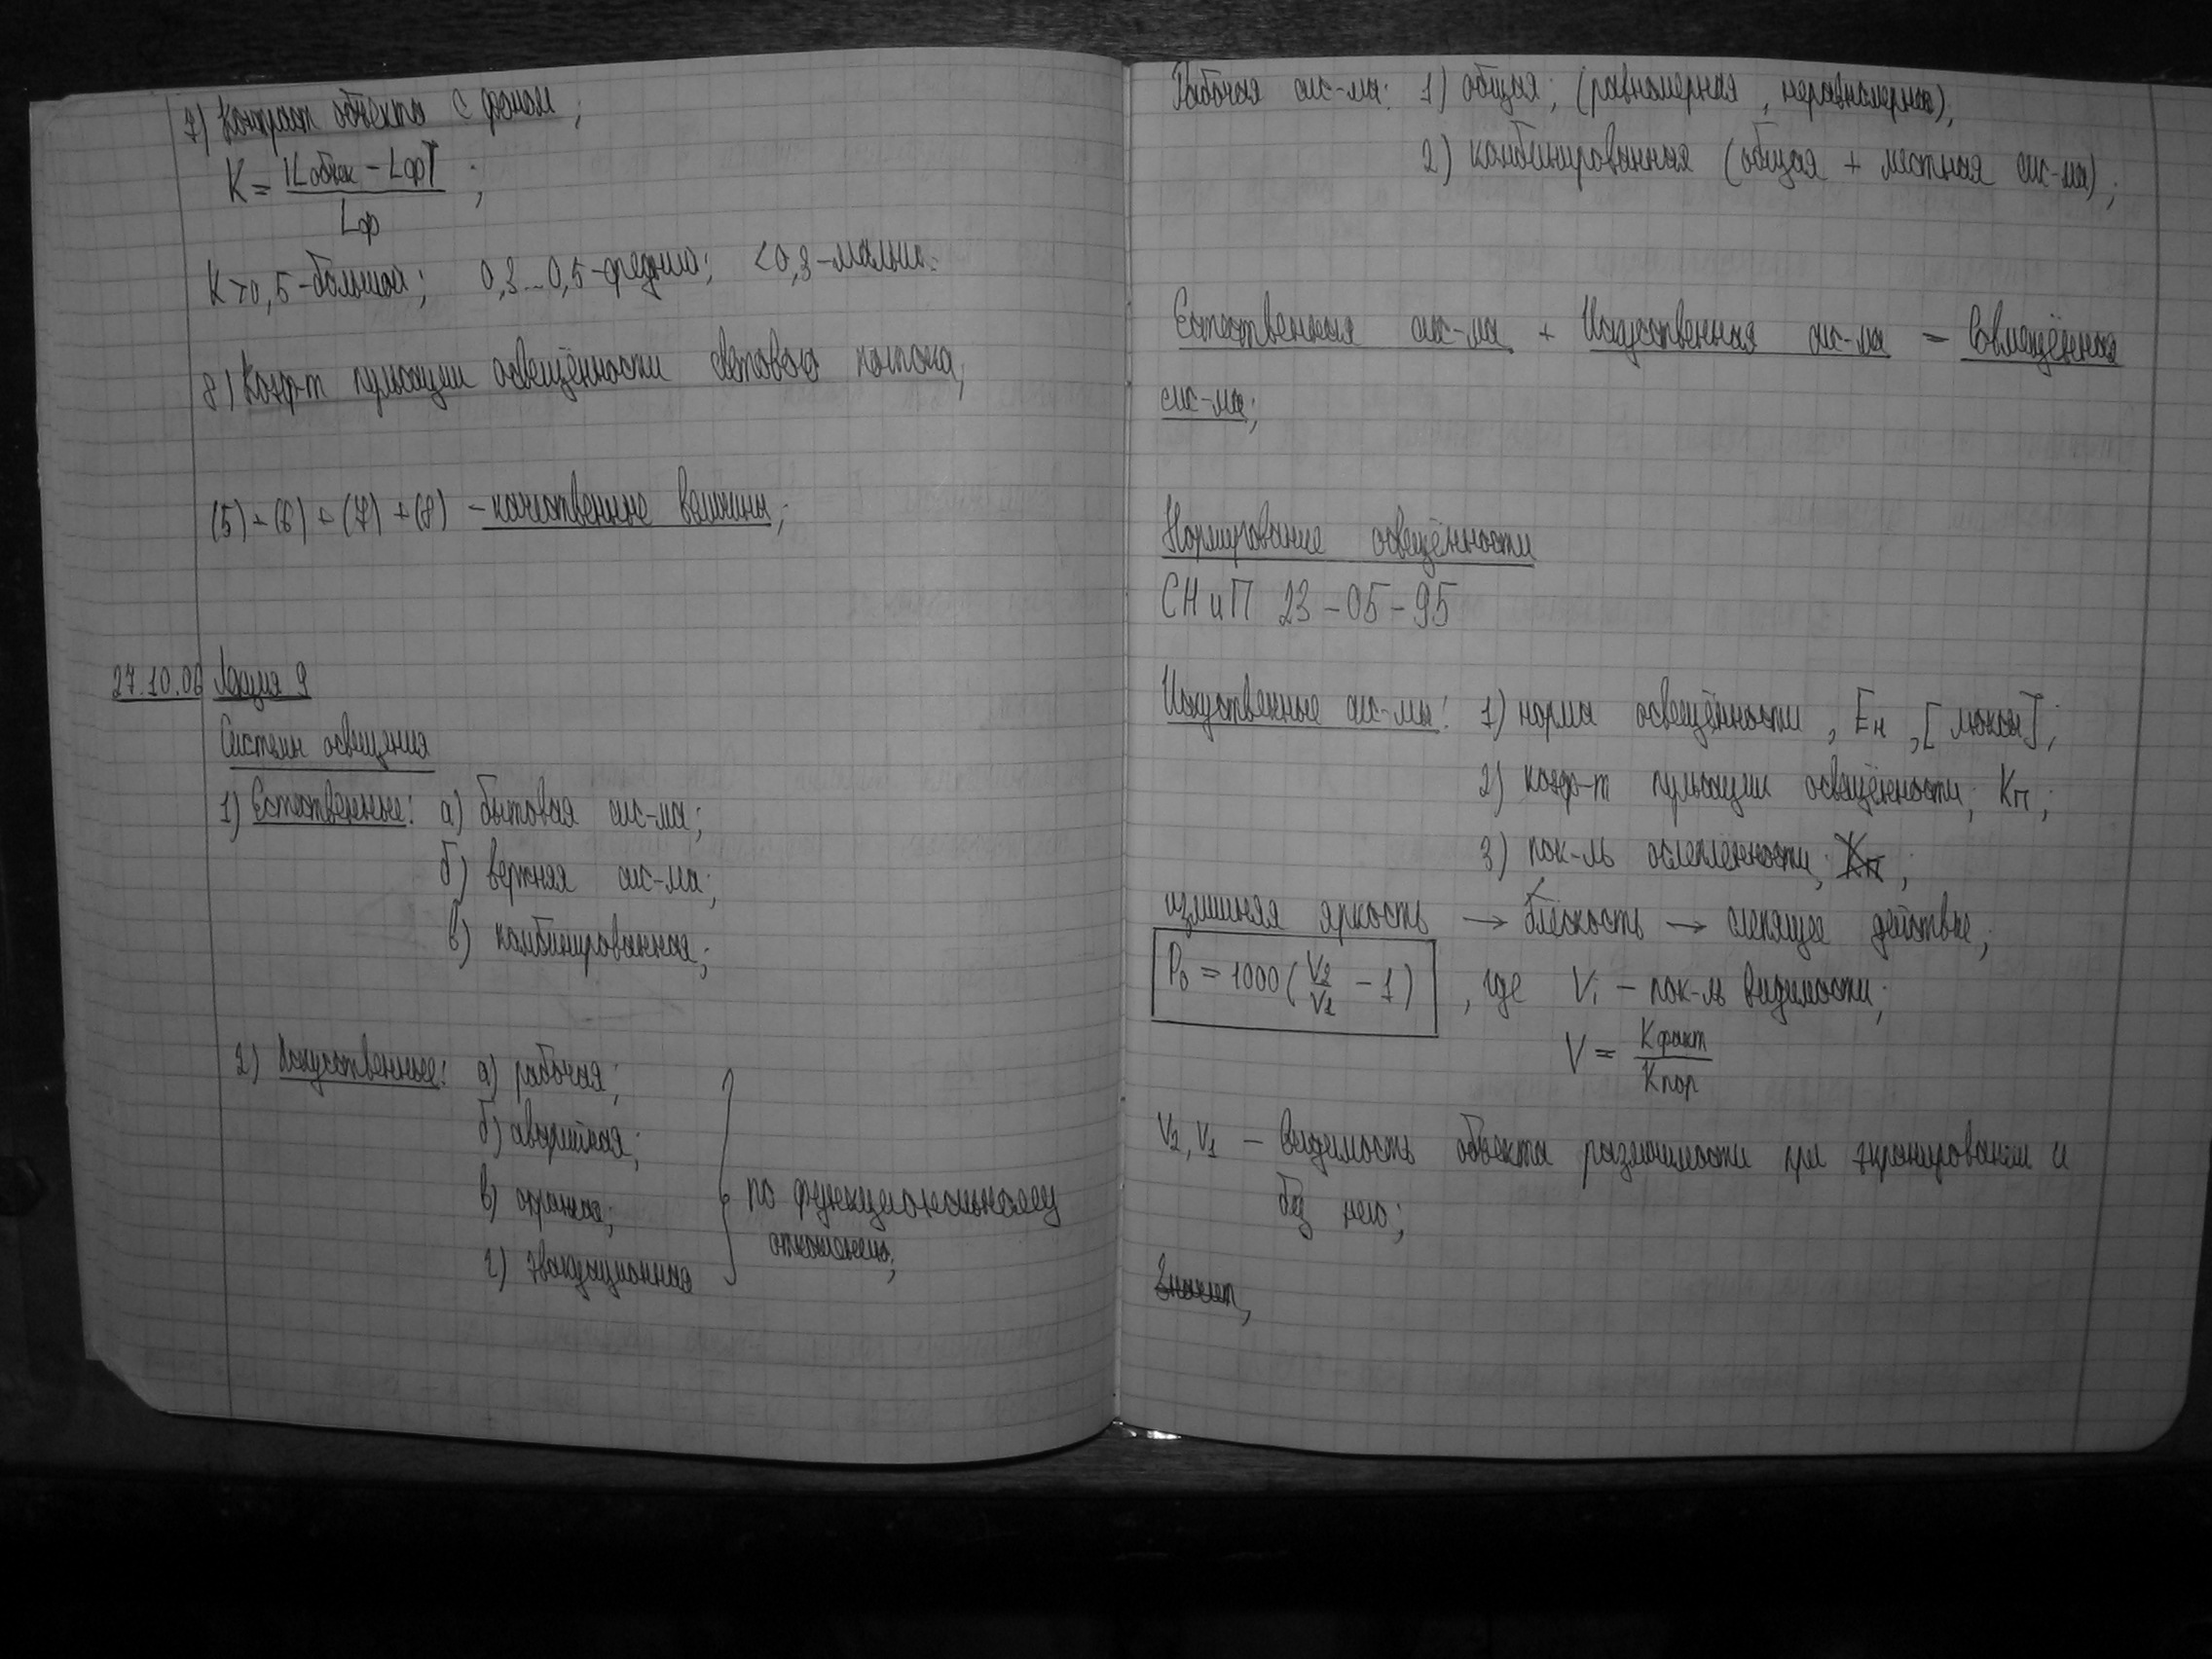 7) Контраст объекта с фоном;
K = |Lобъек - Lф| / Lф ;
K>0,5-большой; 0,3...0,5-средний; <0,3-малый.
8) Коэф-т пульсации освещённости светового потока;
(5)+(6)+(7)+(8) - качественные величины;
27.10.06 Лекция 9
Системы освещения
1) Естественные: а) бытовая сис-ма;
б) верхняя сис-ма;
в) комбинированная;
2) Искуственные: а) рабочая;
б) аварийная;
в) охранная;
г) эвакуационная
по функциональному
Рабочая сис-ма: 1) общая; (равномерная, неравномерная),
2) комбинированная (общая + местная сис-ма);
Естественная сис-ма + Искуственная сис-ма = Совмещённая
сис-ма;
Нормирование освещённости
СНиП 23-05-95
Искуственные сис-мы: 1) норма освещённости, Eн, [люксы];
2) коэф-т пульсации освещённости; Kп;
3) пок-ль ослеплённости; Kп;
излишняя яркость → блёскость → слепящее действие;
P₀ = 1000 (V₂/V₁ - 1), где Vi - пок-ль видимости;
V = Kфакт / Kпор
V₂, V₁ - видимость объекта различимости при экранировании и
без него;
Значит,